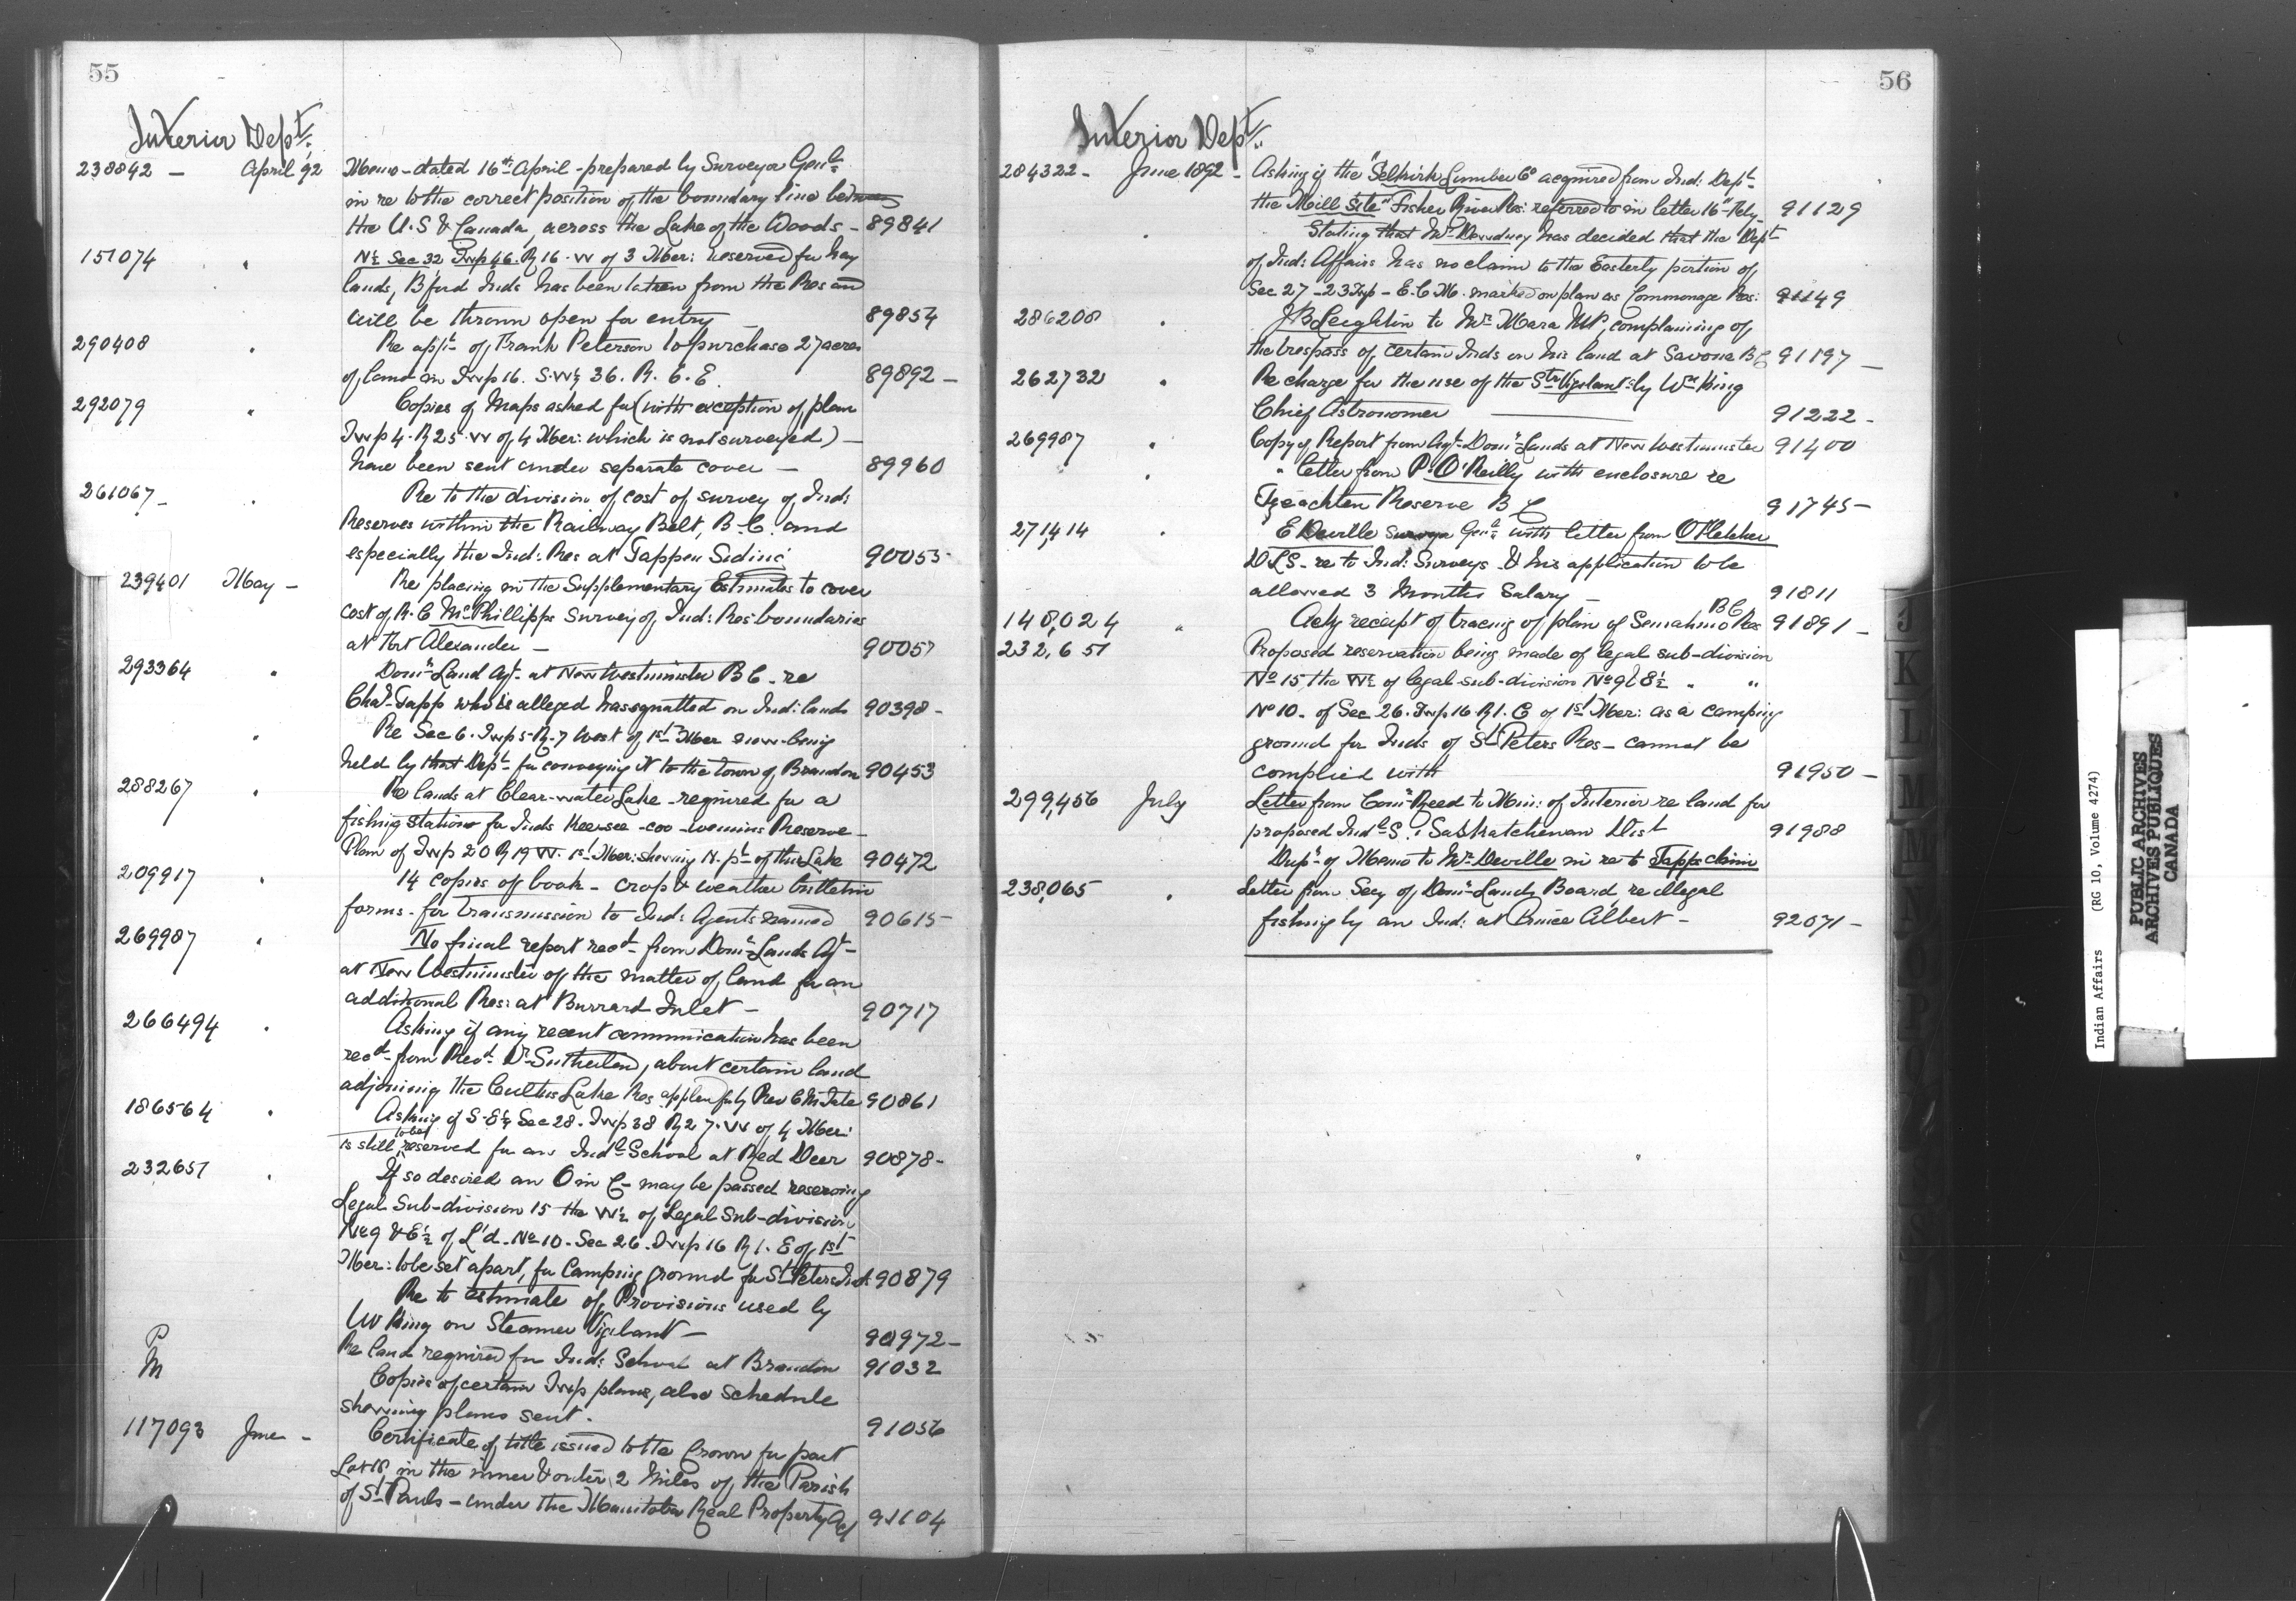 55
Interior Dept.
238842 — April 92 Memo - dated 16th April - prepared by Surveyor Genl
in re to the correct position of the boundary line between
the U.S & Canada, across the Lake of the Woods — 89841
151074 " N½ Sec 32 Twp 46. R 16 . W of 3 Mer: reserved for hay
lands, B'ford Inds has been taken from the Res and
will be thrown open for entry — 89854
290408 " Re applt of Frank Peterson to purchase 27 acres
of land in Twp 16. S.W¼ 36. R. 6. E. 89892 —
292079 " Copies of Maps asked for (with exception of plan
Twp 4. R 25. W of 4 Mer: which is not surveyed) —
have been sent under separate cover — 89960
261067 — " Re to the division of cost of survey of Inds
Reserves within the Railway Belt, B.C. and
especially the Ind: Res at Tappen Siding 90055
239401 May — Re placing in the Supplementary Estimates to cover
cost of R. C McPhillips survey of Ind: Res: boundaries
at Fort Alexander — 90057
293364 " Domn Land Agt at New Westminster B C. re
Chas Tapp who is alleged has squatted on Ind: lands 90398 —
" Re Sec 6. Twp 5. R. 7 West of 1st Mer now being
held by that Dept for conveying it to the town of Brandon 90453
288267 " Re lands at Clear-water Lake - required for a
fishing station for Inds Keesee-coo-wenins Reserve —
Plan of Twp 20 R 19 W. 1st Mer: showing N. pt of this Lake 90472
209917 " 14 copies of book - crop & weather bulletin
forms. for transmission to Ind: Agents named 90615 —
269987 " No final report recd from Domn Lands Agt —
at New Westminster of the matter of land for an
additional Res: at Burrard Inlet — 90717
266494 " Asking if any recent communication has been
recd from Revd Dr Sutherland, about certain land
adjoining the Cultus Lake Res applied for by Rev C M Tate 90861
186564 " Asking if S.E¼ Sec 28. Twp 38 R 27. W of 4 Mer:
is still to be reserved for an Indl School at Red Deer 90878 —
232651 " If so desired an O in C — may be passed reserving
Legal Sub-division 15 the W½ of Legal Sub-division
No 9 & E½ of L'd. No 10. Sec 26. Twp 16 R 1. E of 1st
Mer: to be set apart, for Camping ground for St Peters Inds 90879
Re to estimate of Provisions used by
W King on Steamer Vigilant — 90972 —
P Re land required for Ind: School at Brandon 91032
M Copies of certain Twp plans, also schedule
showing plans sent. 91056
117093 June — Certificate of title issued to the Crown for part
Lot 18, in the inner & outer 2 miles of the Parish
of St Pauls — under the Manitoba Real Property Act 91104
56
Interior Dept.
284322 — June 1892 — Asking if the "Selkirk Lumber Co acquired from Ind: Dept
the Mill Site" Fisher River Res: referred to in letter 16th Feby 91129
" Stating that Mr Dewdney has decided that the Dept
of Ind: Affairs has no claim to the Easterly portion of
Sec 27 - 23 Twp - E. C M. marked on plan as Commonage Res: 91149
286208 " J B Leighton to Mr Mara MP, complaining of
the trespass of certain Inds on his land at Savona B C 91197 —
262732 " Re charge for the use of the Str Vigilant by Wm King
Chief Astronomer — 91222 —
269987 " Copy of Report from Agt Domn Lands at New Westminster 91400
" " letter from P. O'Reilly with enclosure re
Tzeachten Reserve B C 91745 —
271,414 " E Deville Survyr Genl with letter from O Fletcher
D L S — re to Ind: Surveys & his application to be
allowed 3 Months Salary — 91811
148,024 " Ackg receipt of tracing of plan of Semiahmo Res B C 91891 —
232,651 Proposed reservation being made of legal sub-division
No 15, the W½ of legal sub-division No 9 & 8½ " "
No 10. of Sec 26. Twp 16 R 1. E of 1st Mer: as a camping
ground for Inds of St Peters Res — cannot be
complied with 91950 —
299,456 July Letter from Comr Reed to Min: of Interior re land for
proposed Indl S. Saskatchewan Dist 91988
Dup: of Memo to Mr Deville in re to Tapps claim
238,065 " Letter from Secy of Domn Lands Board, re illegal
fishing by an Ind: at Prince Albert — 92071 —
J
K
L
M
Indian Affairs (RG 10, Volume 4274)
PUBLIC ARCHIVES
ARCHIVES PUBLIQUES
CANADA